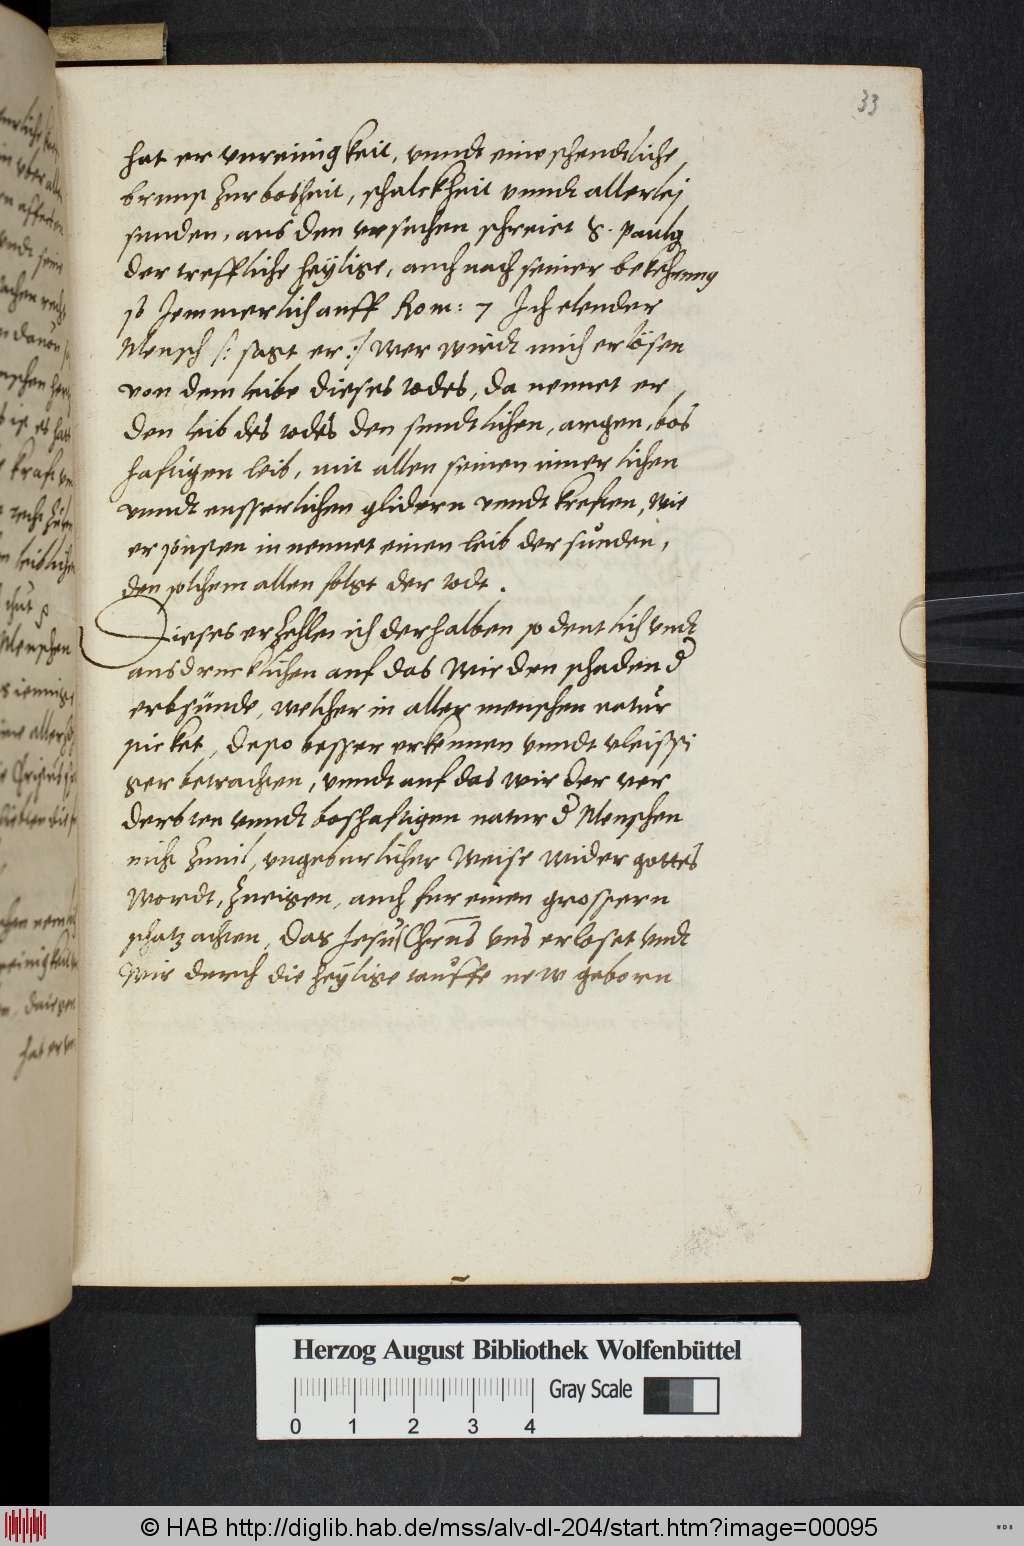 33
hat er vnreinigkeit, vnndt eine schendtliche
brunst zur bosheit, schalckheit vnndt allerlej
sunden, aus den vrsachen schreiet S. Paulg
der treffliche heylige, auch nach seiner bekehrung
so Jemmerlich auff Rom: 7 Ich elender
Mensch /: sagt er :/ wer wirdt mich erlösen
von dem leibe dieses todes, da nennet er
den leib des todes den sundtlichen, argen, bos
hafftigen leib, mit allen seinen innerlichen
vnndt eusserlichen glidern vnndt kreften, wie
er sonsten in nennet einen leib der sunden,
den solchem allen folgt der todt.
Dieses erzehlen ich derhalben so deutlich vndt
ausdrucklichen auf das wir den schaden d
erbsünde, welcher in aller menschen natur
sticket, desto besser erkennen vnndt vleissi
ger betrachten, vnndt auf das wir der ver
derbten vnndt boshaftigen natur d Menschen
nicht zuuil, vngeburlicher weise wider gottes
wordt, zueigen, auch fur einen grossern
schatz achten, das Jesus Chrus vns erloset vndt
wir durch die heylige tauffe new geborn
Herzog August Bibliothek Wolfenbüttel
0 1 2 3 4
Gray Scale
© HAB http://diglib.hab.de/mss/alv-dl-204/start.htm?image=00095